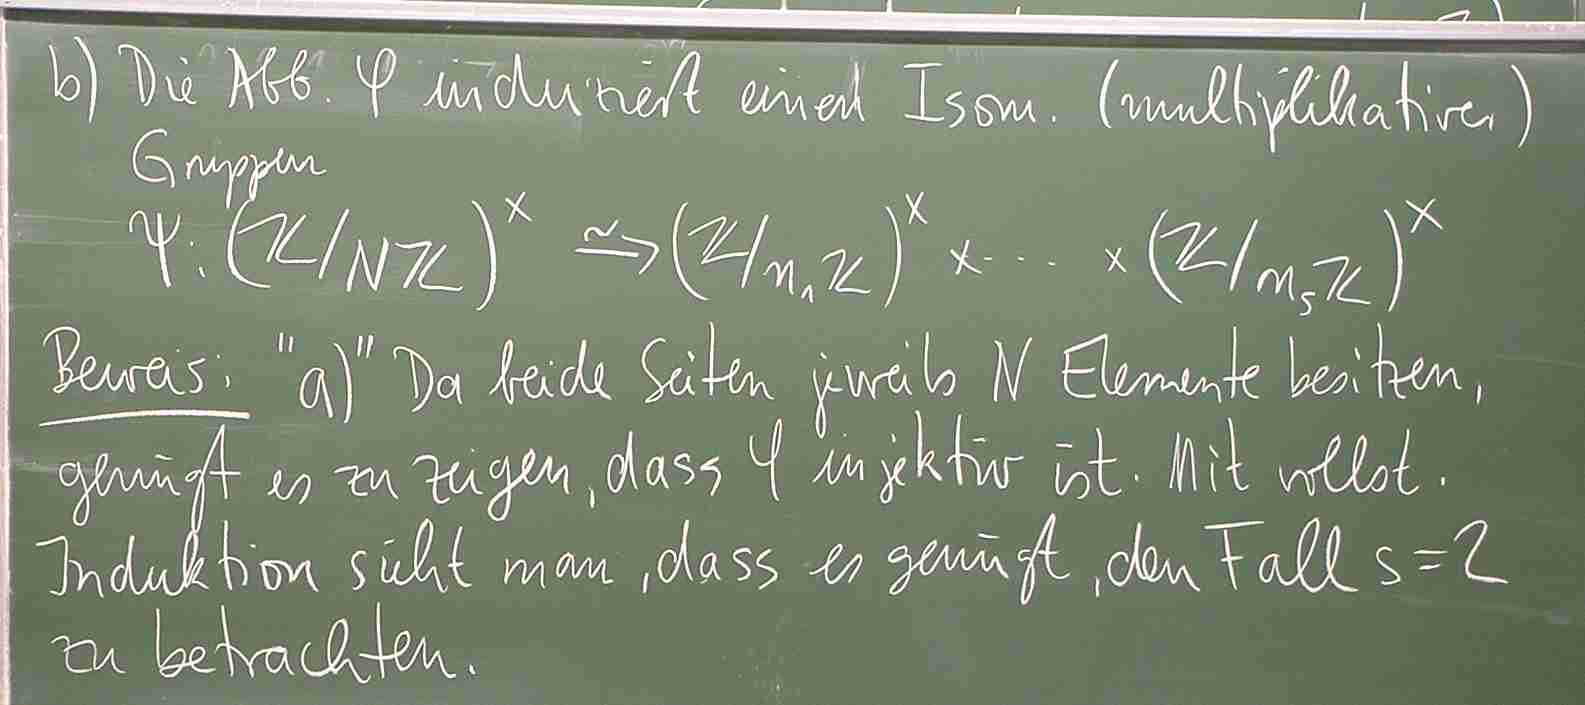 b) Die Abb. φ induziert einen Isom. (multiplikativer)
Gruppen
Ψ: (ℤ/Nℤ)^× ⥲ (ℤ/n₁ℤ)^× × ··· × (ℤ/n_sℤ)^×
Beweis: "a)" Da beide Seiten jeweils N Elemente besitzen,
genügt es zu zeigen, dass φ injektiv ist. Mit vollst.
Induktion sieht man, dass es genügt, den Fall s=2
zu betrachten.